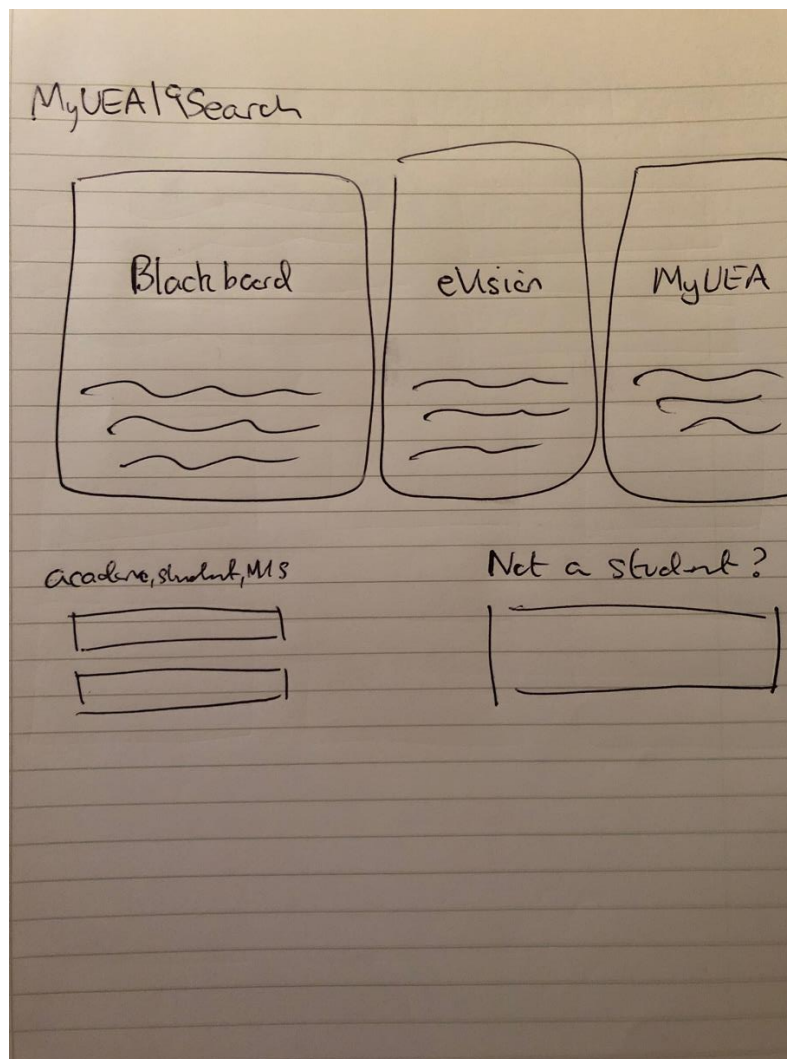 MyUEA | Search
Blackboard
eVision
MyUEA
student,
Not a student?